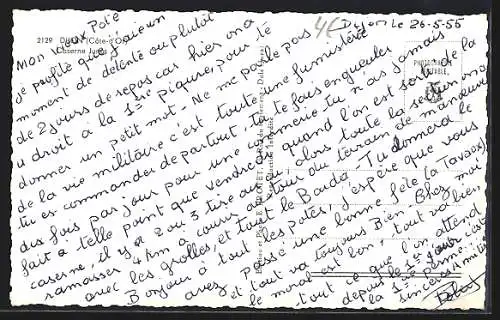 Dijon le 26-5-55
4€
2129 DIJON (Côte-d'Or)
Caserne Junot
Mon vieux Pote
je profite que j'ai un
moment de détente ou plutôt
de 2 jours de repos car hier on a
u droit à la 1ère Piqure, pour te
donner un petit mot. Ne me parle pas
de la vie militaire c'est toute une fumisterie
tu es commander de partout, tu te fais engueuler
des fois par jour pour une connerie tu n'as jamais
fait à telle point que vendredi quand l'on est sorti de la
caserne, il y a 2 ou 3 tire au alors toute la section on a
ramasser 4 km à courir autour du terrain de manœuvre
avec les grolles et tout le Barda. Tu donnera le
Bonjour à tout les potes j'espère que vous
avez passé une bonne fête (à Tavaux)
et tout va toujours Bien. Chez moi
le moral est bon tout va bien
tout ce que l'on attend
depuis le 1er jour c'est
la 1ère perme.
sincères amitiés